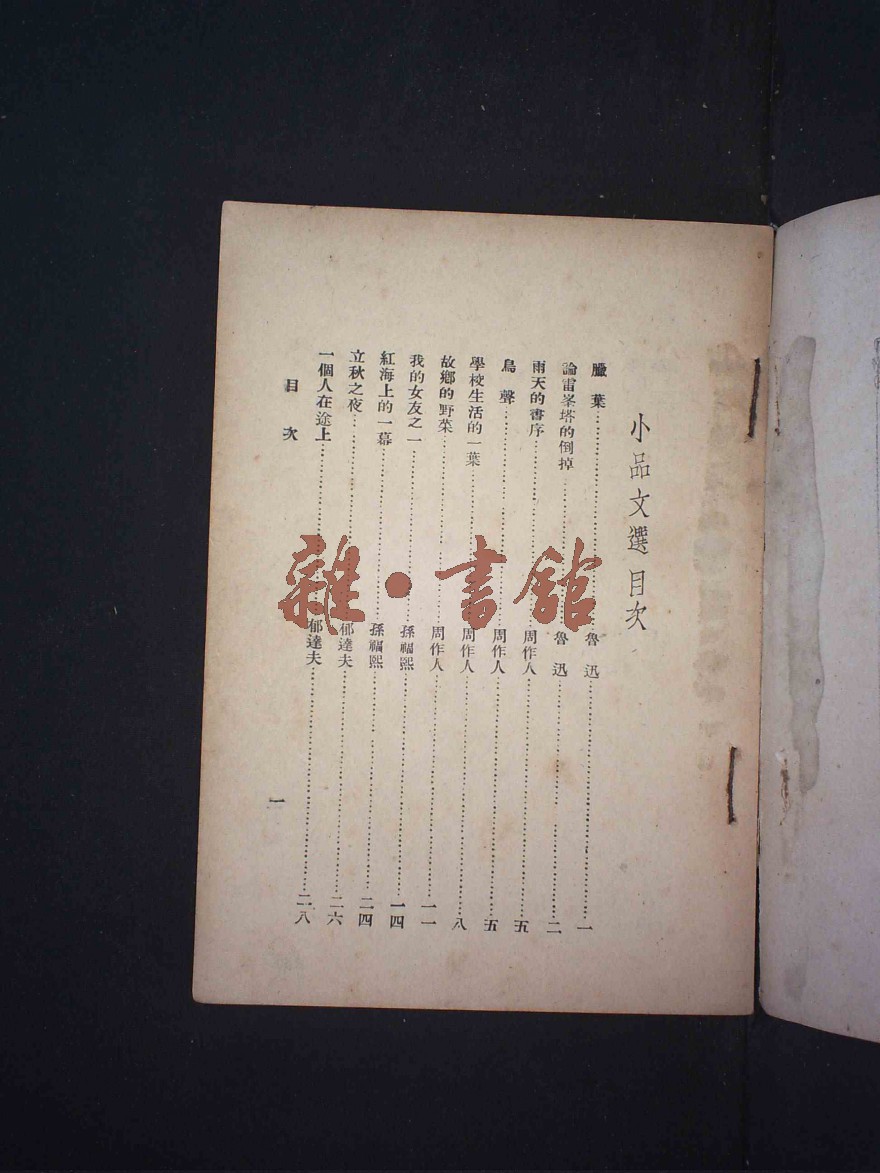 小品文選目次
臘葉……魯迅……一
論雷峯塔的倒掉……魯迅……二
雨天的書序……周作人……五
鳥聲……周作人……五
學校生活的一葉……周作人……八
故鄉的野菜……周作人……一一
我的女友之一……孫福熙……一四
紅海上的一幕……孫福熙……二四
立秋之夜……郁達夫……二六
一個人在途上……郁達夫……二八
目次
一
雜·書館